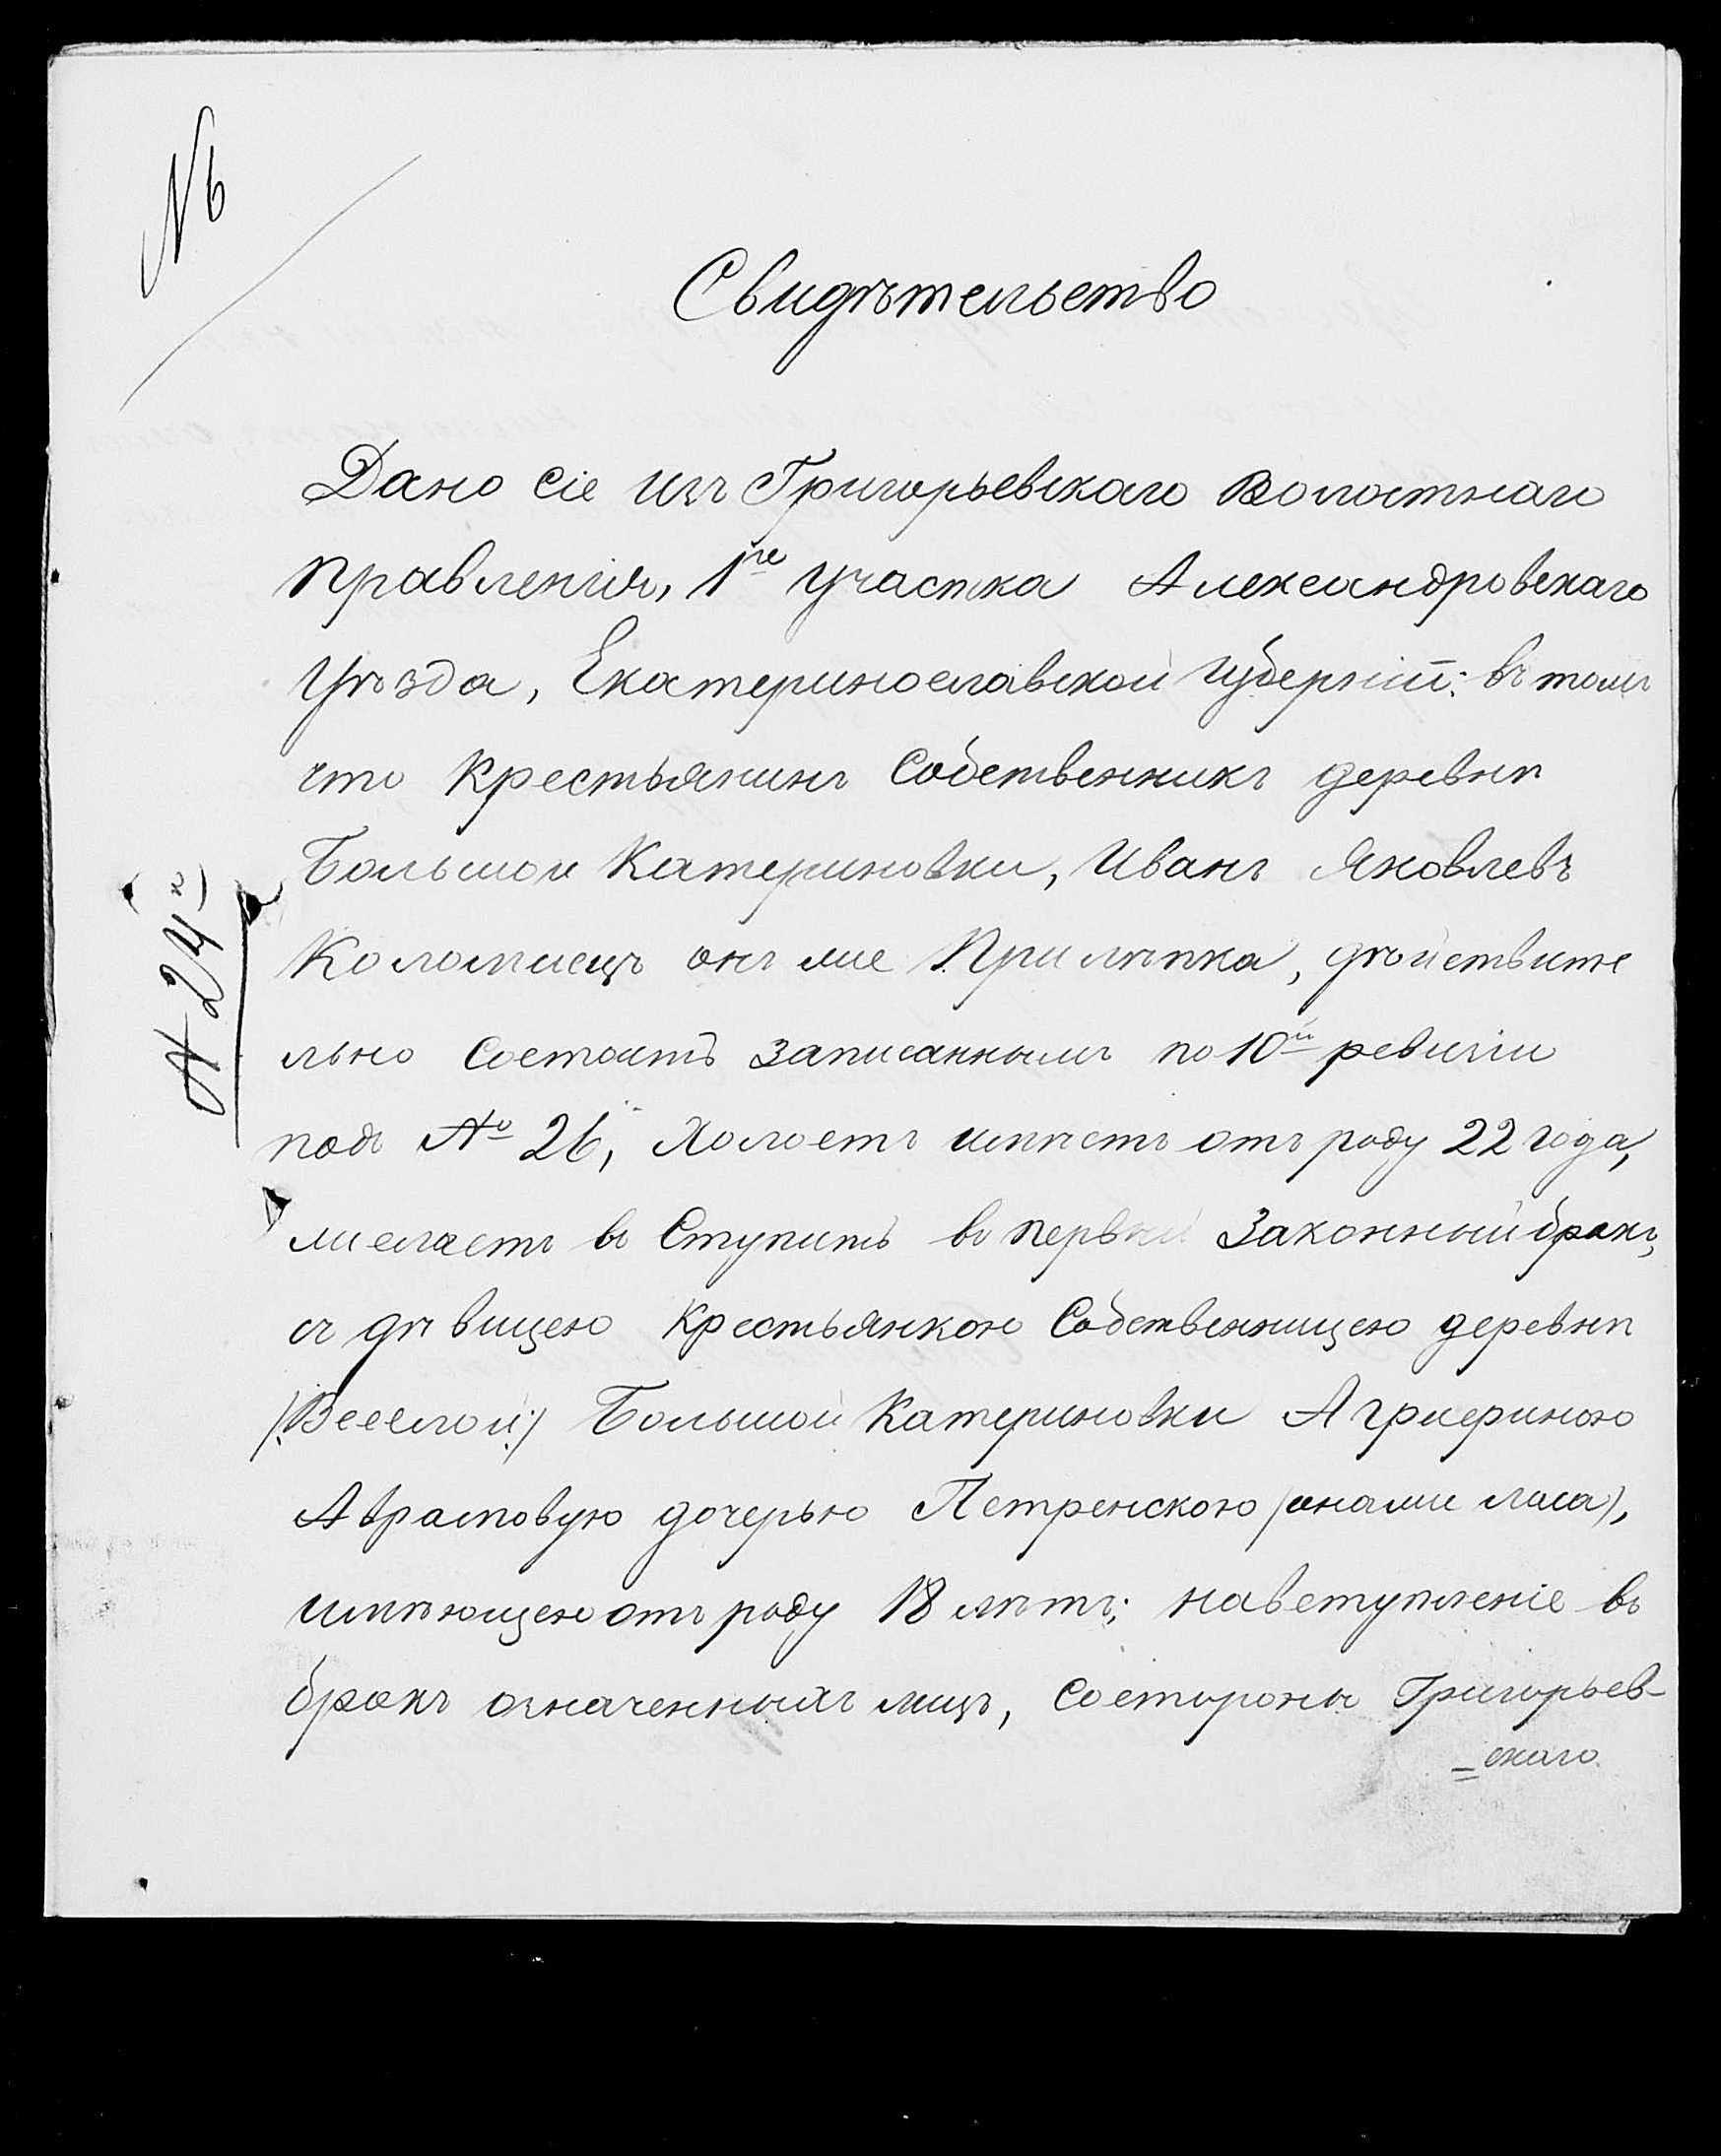 № 6
Свидѣтельство
Дано сіе изъ Григорьевскаго Волостнаго
Правленія, 1го участка Александровскаго
Уѣзда, Екатеринославской Губерніи: въ томъ
что Крестьянинъ Собственникъ деревни
Большой Катериновки, Иванъ Яковлевъ
№ 24й
Коломиецъ онъ же Прилѣпка, дѣйствите
льно состоитъ записаннымъ по 10й ревизіи
подъ № 26, Холостъ имѣетъ отъ роду 22 года,
желаетъ в Ступить въ первый Законный бракъ,
съ дѣвицею Крестьянкою Собственницею деревни
(:Веселой:) Большой Катериновки Агрифиною
Аврамовую дочерью Петренскою (она же лиса),
имѣющею отъ роду 18 лѣтъ; на вступленіе въ
бракъ означенныхъ лицъ, со стороны Григорьев-
=скаго